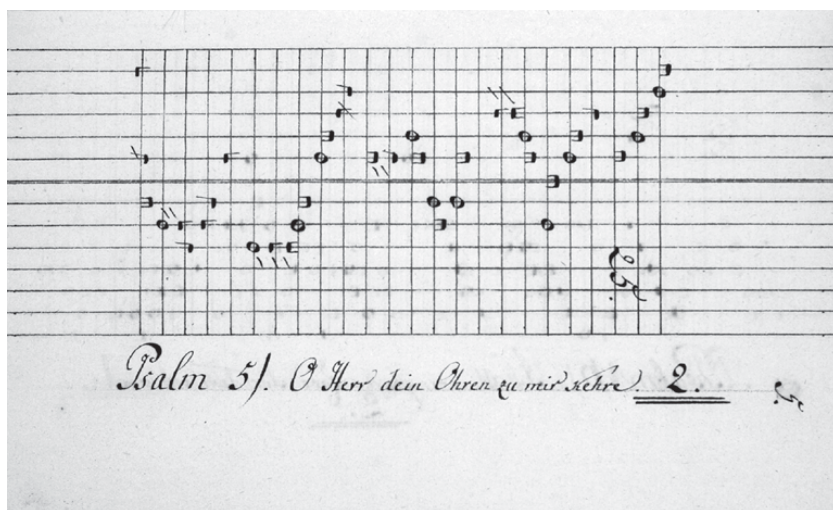 Psalm 5). O Herr dein Ohren zu mir kehre. 2.